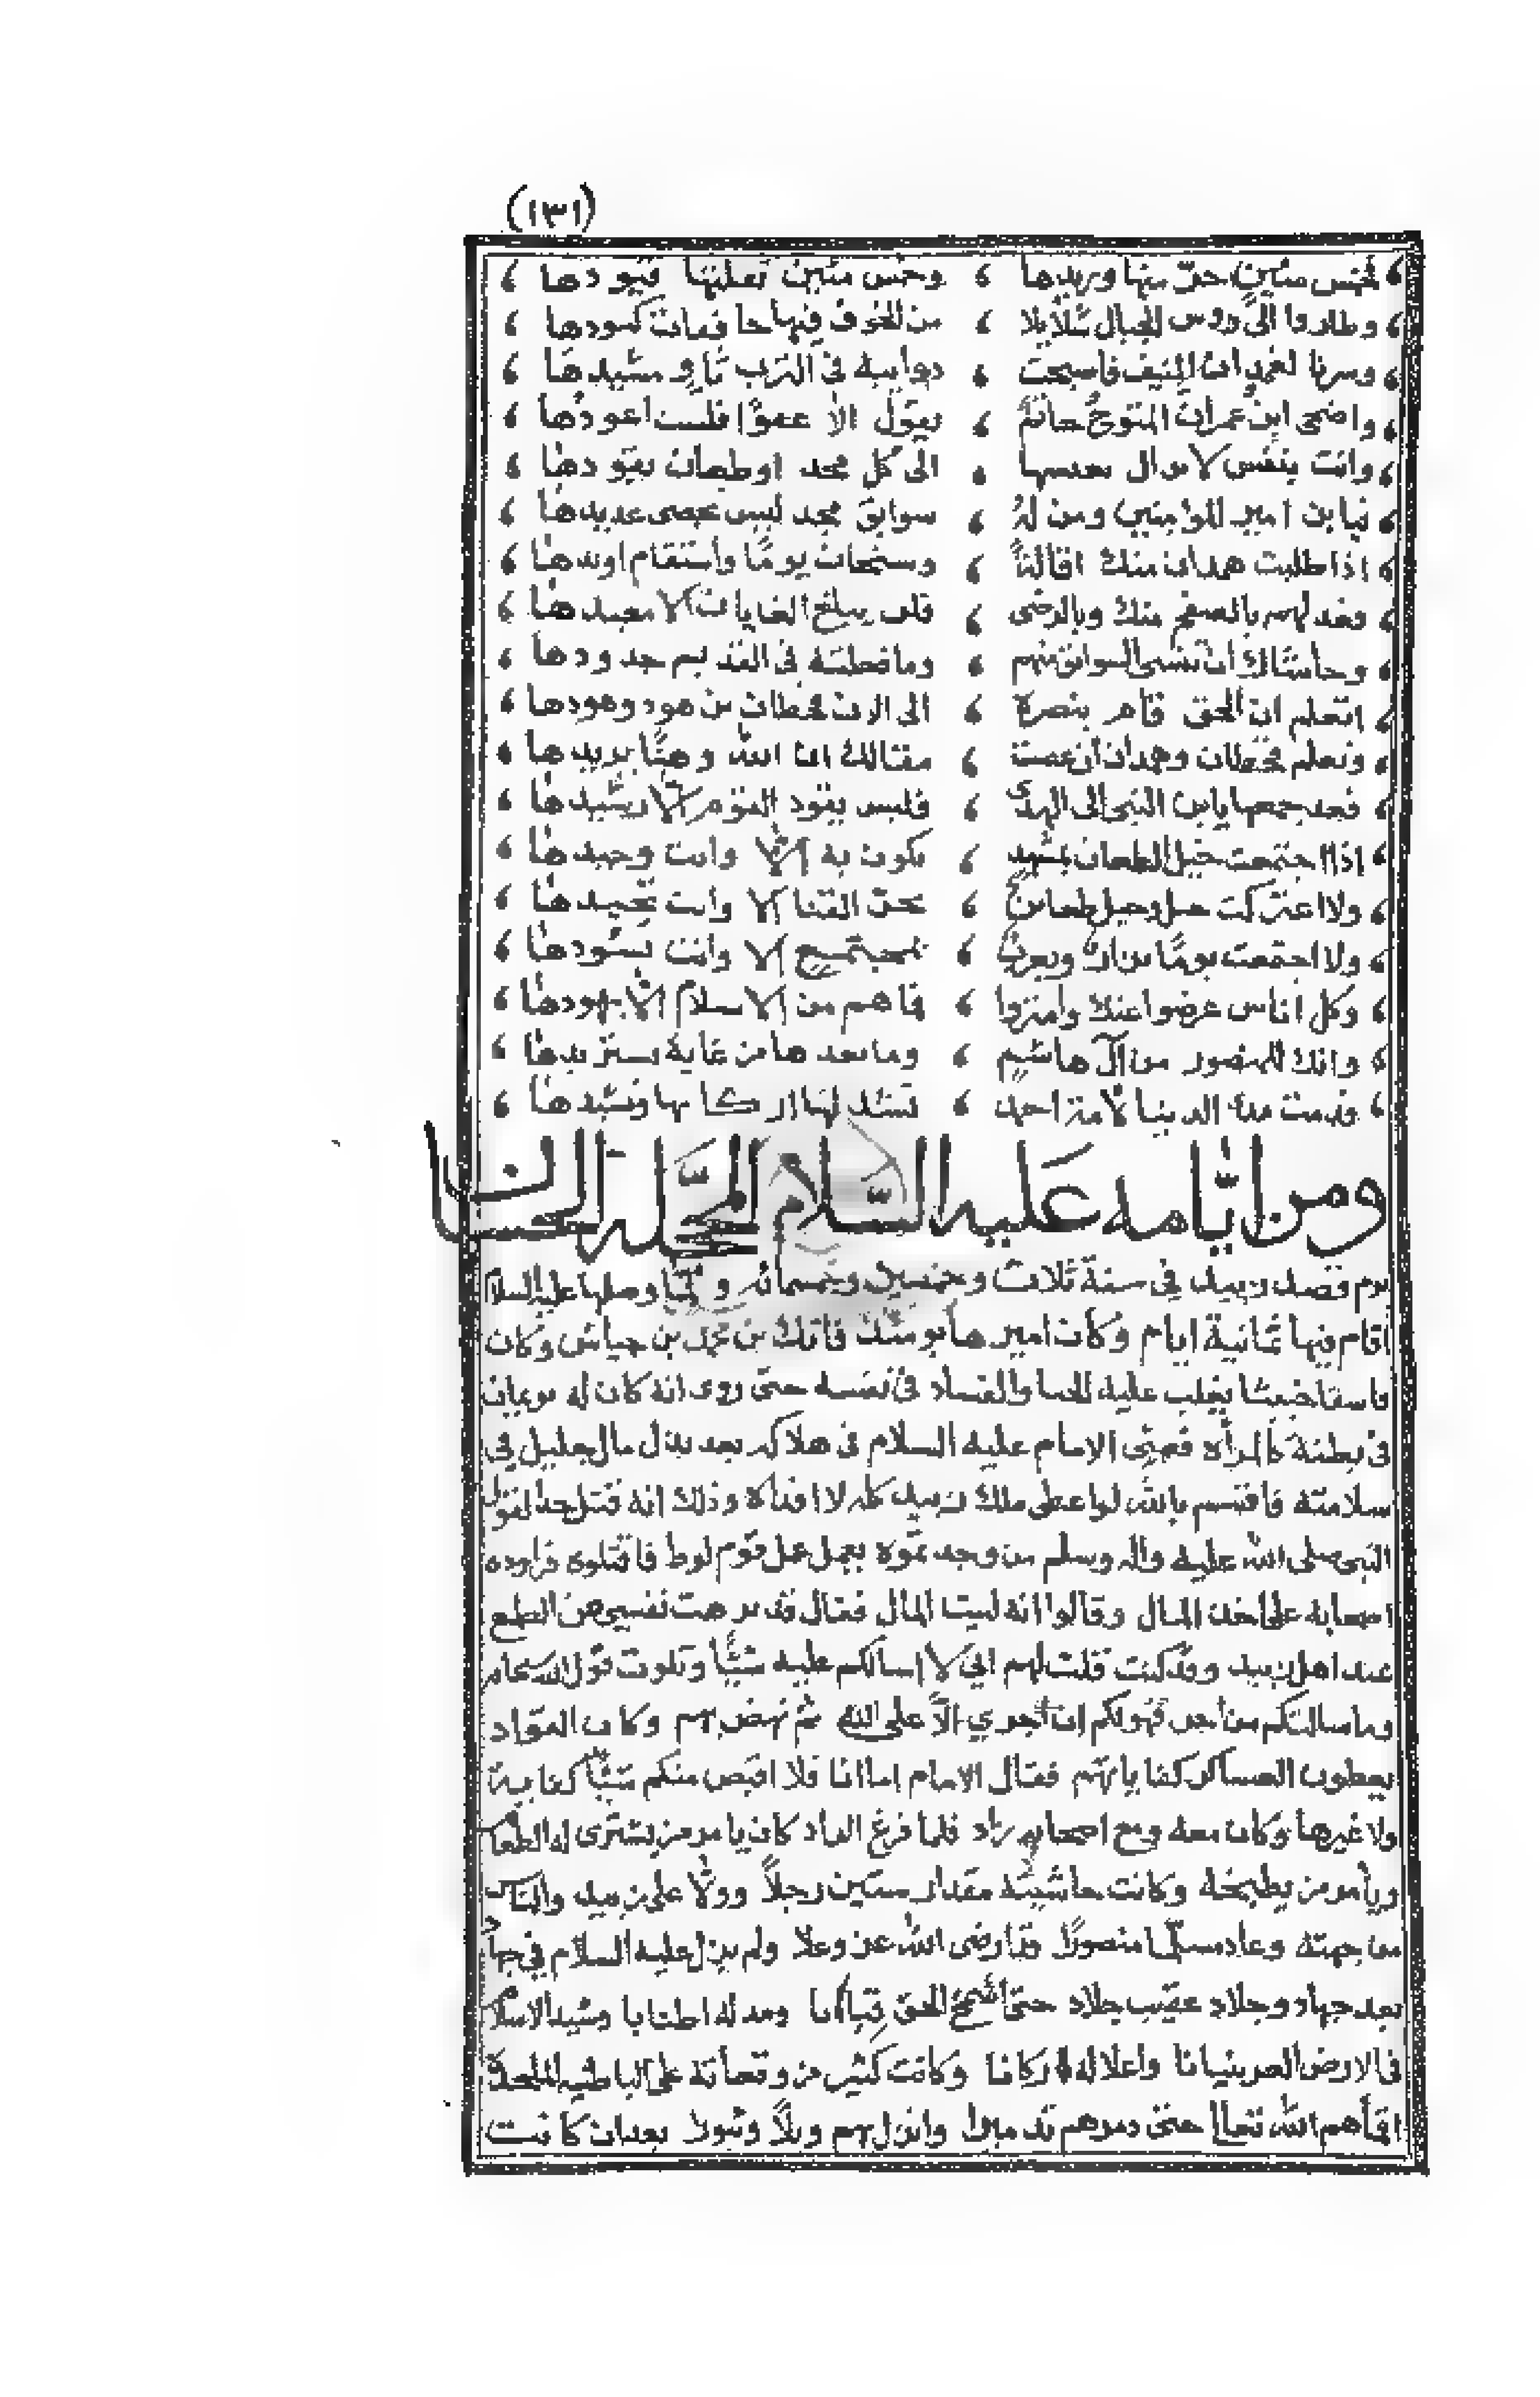 (١٣١)
لخمس مئين حزّ منها وريدها وخمس مئين تعليها قيودها
وطاروا الى روس الجبال شلايلا من الخوف فيها خافعات كبودها
وسرنا لغمدان المنيف فاصبحت دوابيه في الترب ثاو مشيدها
واضحى ابن عمران المتوج حاتم يقول الا عفوا فلست اعودها
وانت الى كل مجد او طعان يقودها
فيا بن امير المؤمنين ومن له سوابق مجد ليس يحصى عديدها
اذا طلبت همدان منك اقالة يوما واستقام اودها
وعد لهم بالصفح منك وبالرضى فلن يبلغ الغايات الا معيدها
وحاشاك ان تنسى السوابق منهم وما فعلته في القديم جدودها
اتعلم ان الحق قام بنصره الى الان قحطان بن هود وهودها
وتعلم قحطان وهمدان ان عصت مقالك ان الله وهنا يريدها
فعد جمعها يا بن النبي الى الهدى فليس يقود القوم الا رشيدها
اذا اجتمعت خيل الطعان بمشهد يكون به الا وانت وحيدها
ولا اعتركت خيل وخيل القنا الا وانت
ولا اجتمعت يوما نزار ويعرب بمجتمع الا وانت تسودها
وكل اناس عرضوا عنك وامتروا فما هم من الاسلام الا يهودها
وانك للمنصور من آل هاشم وما بعدها من غاية تستزيدها
ودمت مدى الدنيا لامة احمد تشد لها اركانها وتشيدها
ومن ايّامه عليه السّلام المحجّلة الحسان
يوم قصد زبيد في سنة ثلاث وخمسين وخمسمائة ولما وصلها عليه السلام
اقام فيها ثمانية ايام وكان اميرها يومئذ فاتك بن محمد بن جياش وكان
فاسقا خبيثا يغلب عليه الخنا والفساد في نفسه حتى روى انه كان له
في بطنة كالمرأه فعني الامام عليه السلام في هلاكه بعد بذل مال جليل في
سلامته فاقسم بالله لو اعطى ملك زبيد كله لا افداه وذلك انه قتل حدا لقول
النبي صلى الله عليه واله وسلم من وجدتموه يعمل عمل قوم لوط فاقتلوه فراوده
اصحابه على اخذ المال وقالوا انه لبيت المال فقال قد نزهت نفسي عن الطمع
عند اهل زبيد وقد كنت قلت لهم اني لا اسالكم عليه شيئا وتلوت قول الله سبحانه
وما سالتكم من اجر فهو لكم ان اجري الا على الله ثم نهض بهم وكان القواد
يعطون العساكر كفاياتهم فقال الامام اما انا فلا اقبض منكم شيئا كفاية
ولا غيرها وكان معه ومع اصحابه زاد فلما فرغ الزاد كان يامر من يشتري له الطعام
ويامر من يطبخه وكانت حاشيته مقدار ستين رجلا وولا على زبيد واليا
من جهته وعاد مسلّما منصورا وقد ارضى الله عز وعلا ولم يزل عليه السلام في جهاد
بعد جهاد وجلاد عقيب جلاد حتى للحق قبابا ومد له اطنابا وشيد الاسلام
في الارض بنيانا واعلا له اركانا وكانت كثير من وقعاته على الباطنيه الملحدة
اقمأهم الله تعالى حتى دمرهم تدميرا وانزل بهم ويلا وثبورا بعد ان كانت